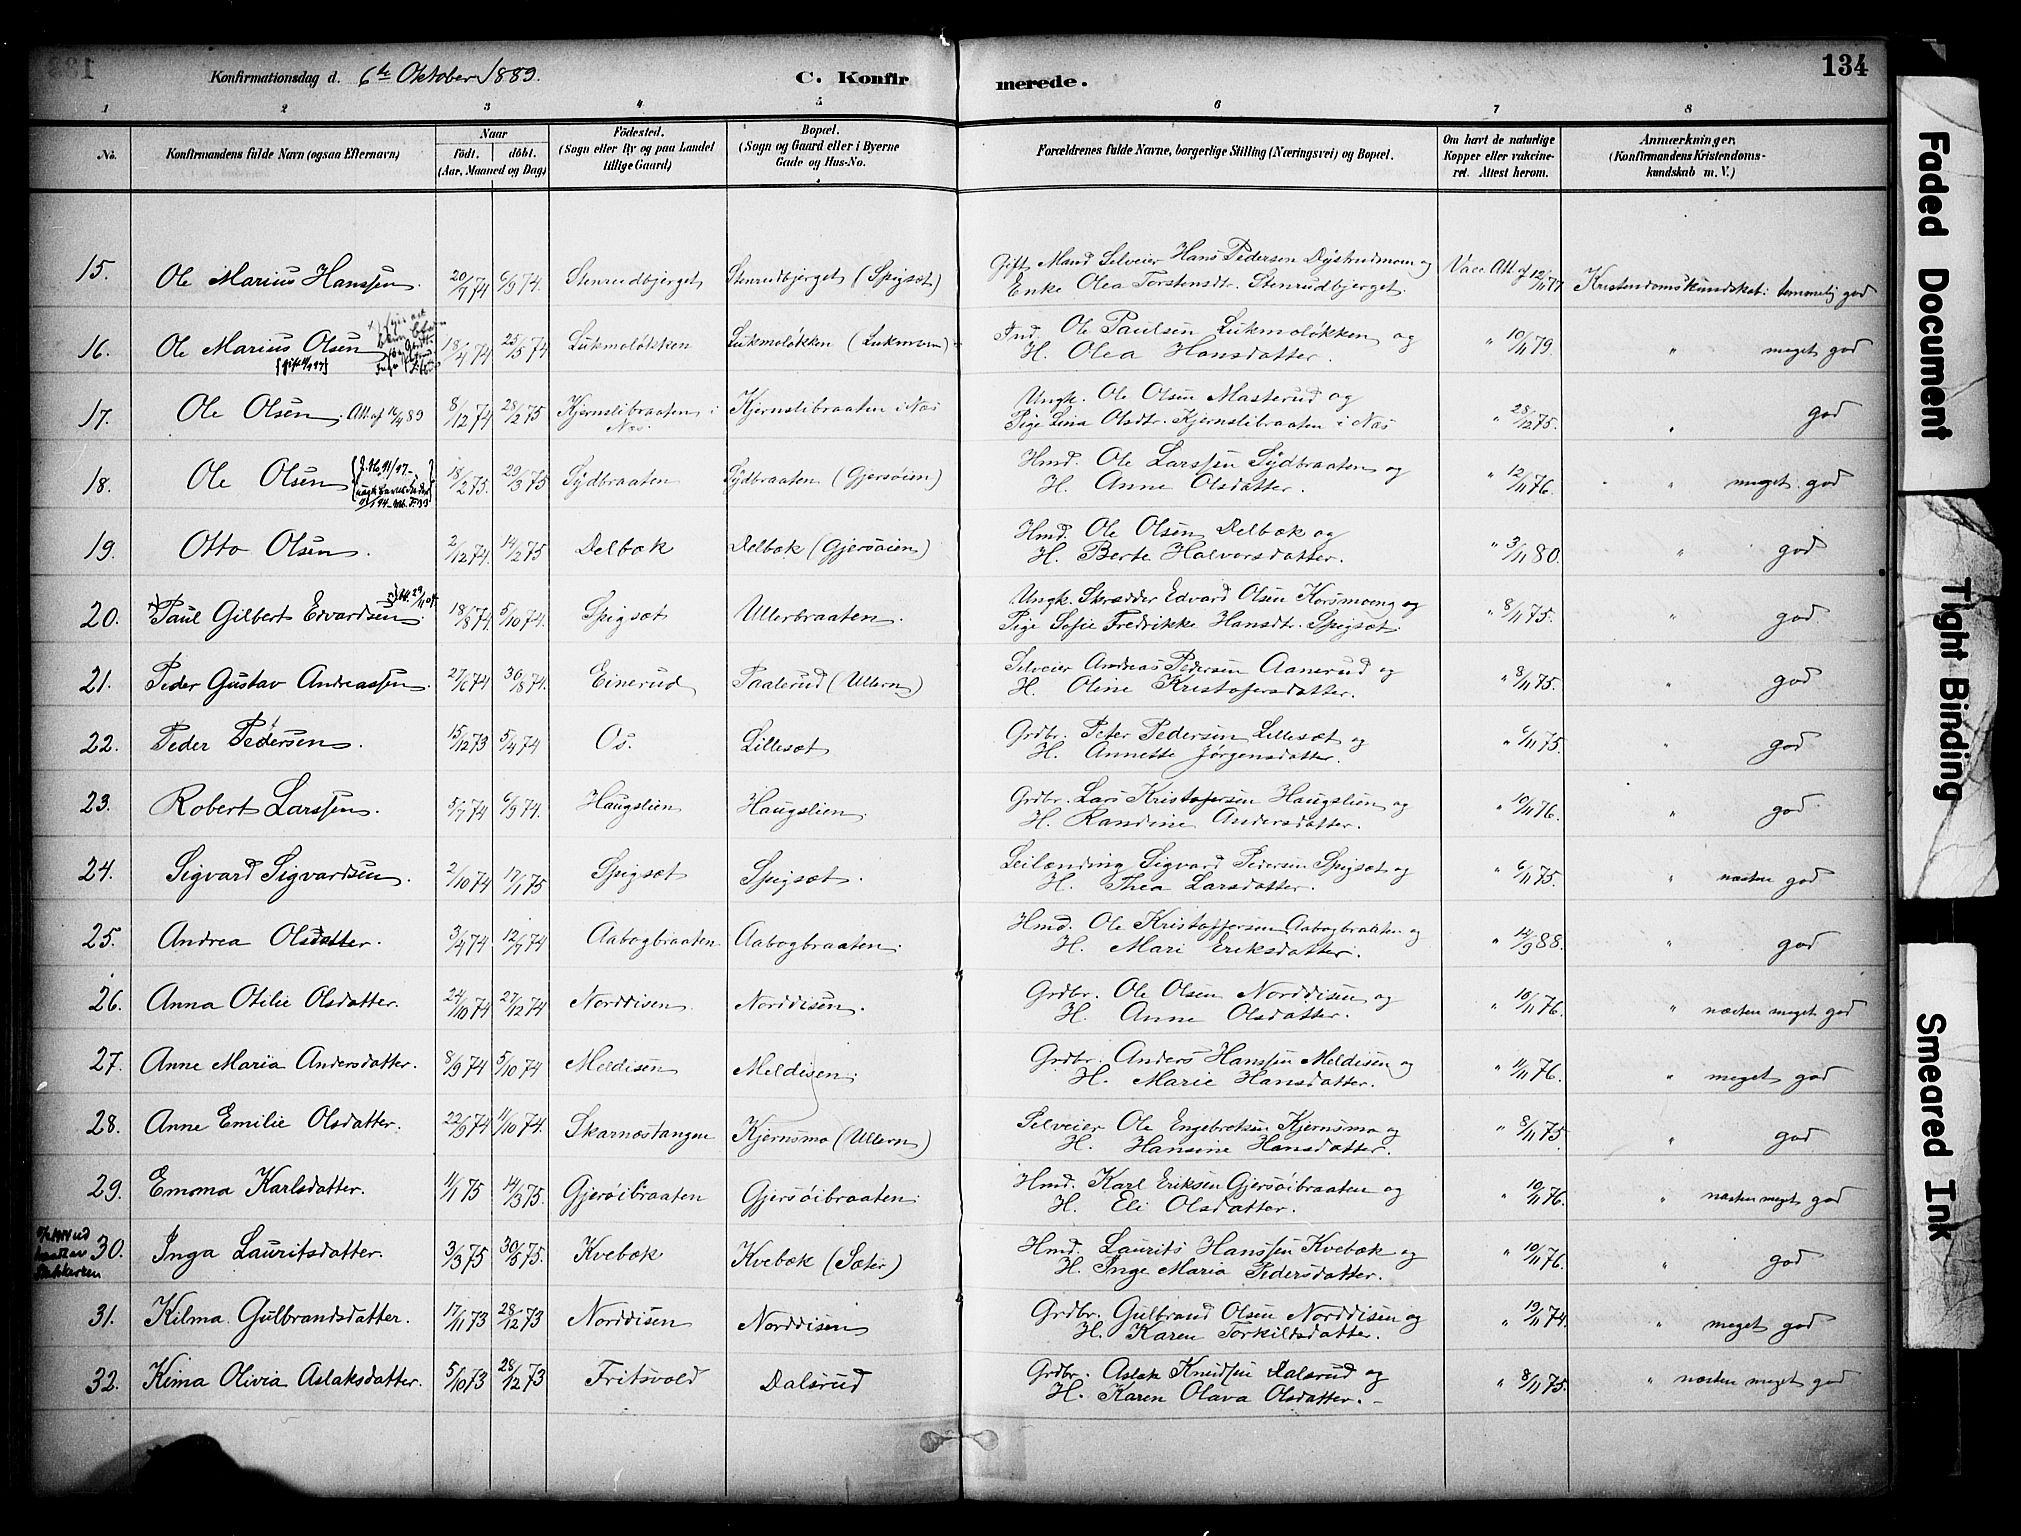 134
Konfirmationsdag d. 6te Oktober 1889. C. Konfirmerede.
1 2 3 4 5 6 7 8
No. Konfirmandens fulde Navn (ogsaa Efternavn) Naar födt. döbt. (Aar, Maaned og Dag) Födested. (Sogn eller By og paa Landet tillige Gaard) Bopæl. (Sogn og Gaard eller i Byerne Gade og Hus-No. Forældrenes fulde Navne, borgerlige Stilling (Næringsvei) og Bopæl. Om havt de naturlige Kopper eller vakcineret. Attest herom. Anmærkninger. (Konfirmandens Kristendomskundskab m. V.)
15. Ole Marius Hanssen. 20/7 74 6/9 74. Stenrudbjerget Stenrudbjerget (Spigsæt) Gift Mand Selveier Hans Pedersen og
Enke Olea Torstensdtr. Stenrudbjerget. Vacc. Att. af 12/11 77 Kristendomskundskab: temmelig god
16. Ole Marius Olsen 18/4 74 25/5 74 Lukmoløkken Lukmoløkken (Lukmoen) Ind. Ole Paulsen Lukmoløkken og
H. Olea Hansdatter. " 10/11 79. " meget god
17. Ole Olsen. Att. af 16/4 89 8/12 74 28/2 75 Kjernslibraaten i Næs. Kjernslibraaten i Næs Ungk. Ole Olsen Masterud og
Pige Lina Olsdtr. Kjernslibraaten i Næs " 28/12 75. " god
18. Ole Olsen 18/2 75. 29/3 75 Sydbraaten Sydbraaten (Gjersøien) Hmd. Ole Larssen Sydbraaten og
H. Anne Olsdatter. " 12/11 76. " meget god
19. Otto Olsen. 2/12 74. 14/2 75 Delbæk Delbæk (Gjersøien) Hmd. Ole Olsen Delbæk og
H. Berte Halvorsdatter. " 3/11 80. " god
20. Paul Gilbert Edvardsen. 18/8 74. 5/10 74. Spigsæt Ullerbraaten. Ungk. Skrædder Edvard Olsen Korsmoeng og
Pige Sofie Fredrikke Hansdtr. Spigsæt. " 8/11 75. " god
21. Peder Gustav Andreassen. 27/6 74 30/8 74. Einerud Paalerud (Ullern) Selveier Andreas Pedersen Aanerud og
H. Oline Kristofersdatter. " 8/11 75. " god
22. Peder Pedersen. 15/12 73 5/4 74 Os. Lillesæt Grdbr. Peter Pedersen Lillesæt og
H. Annette Jørgensdatter. " 6/11 75. " god
23. Robert Larssen. 5/7 74 6/9 74. Haugslien Haugslien. Grdbr. Lars Kristofersen Haugslien og
H. Randine Andersdatter. " 10/11 76. " god
24. Sigvard Sigvardsen. 2/10 74 17/1 75 Spigsæt Spigsæt. Leilænding Sigvard Pedersen Spigsæt og
H. Thea Larsdatter. " 6/11 75. " næsten god
25. Andrea Olsdatter. 3/4 74 12/7 74 Aabogbraaten Aabogbraaten. Hmd. Ole Kristoffersen Aabogbraaten og
H. Mari Eriksdatter. " 14/9 88. " god
26. Anna Otilie Olsdatter. 24/10 74 27/12 74 Norddisen. Norddisen. Grdbr. Ole Olsen Norddisen og
H. Anne Olsdatter. " 10/11 76. " næsten meget god
27. Anne Maria Andersdatter. 8/9 74 5/10 74 Meldisen Meldisen. Grdbr. Anders Hanssen Meldisen og
H. Marie Hansdatter. " 11/11 76. " meget god
28. Anne Emilie Olsdatter. 22/9 74 11/10 74. Skarnæstangen Kjernsmo (Ullern) Selveier Ole Engebretsen Kjernsmo og
H. Hansine Hansdatter. " 8/11 75. " god
29. Emma Karlsdatter. 11/1 75 14/3 75. Gjersøibraaten Gjersøibraaten. Hmd. Karl Eriksen Gjersøibraaten og
H. Eli Olsdatter. " 10/11 76. " næsten meget god
30. Inga Lauritsdatter. 3/3 75 30/5 75. Kvebæk Kvebæk (Sæter) Hmd. Laurits Hanssen Kvebæk og
H. Inge Maria Pedersdatter. " 10/11 76. " god
31. Kilma Gulbrandsdatter. 17/11 73 28/12 73 Norddisen Norddisen Grdbr. Gulbrand Olsen Norddisen og
H. Karen Torkildsdatter. " 19/11 74. " meget god
32. Kima Olivia Aslaksdatter. 5/10 73 28/12 73 Fritsvold Dalsrud Grdbr. Aslak Knudsen Dalsrud og
H. Karen Olava Olsdatter. " 8/11 75. " næsten meget god
Faded Document
Tight Binding
Smeared Ink